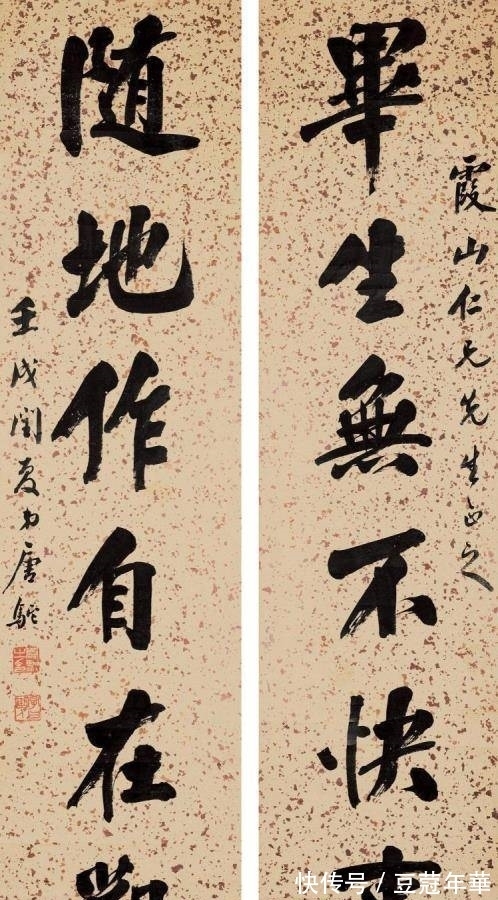 霞山仁兄先生正之
畢生無不快
随地作自在
壬戌閏夏弟唐駝
快传号 / 豆蔻年華